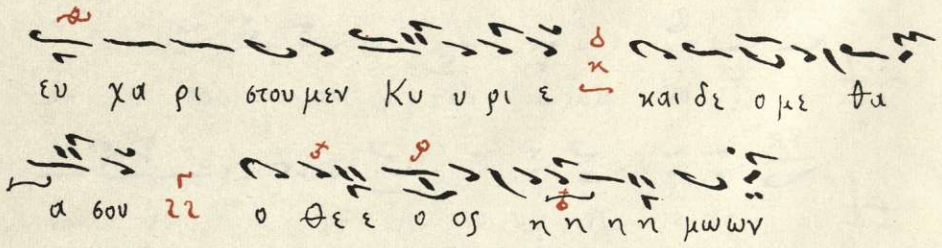 ευ χα ρι στου μεν Κυ υ ρι ε και δε ο με θα
α σου ο Θε ε ο ος η η η η μω ων